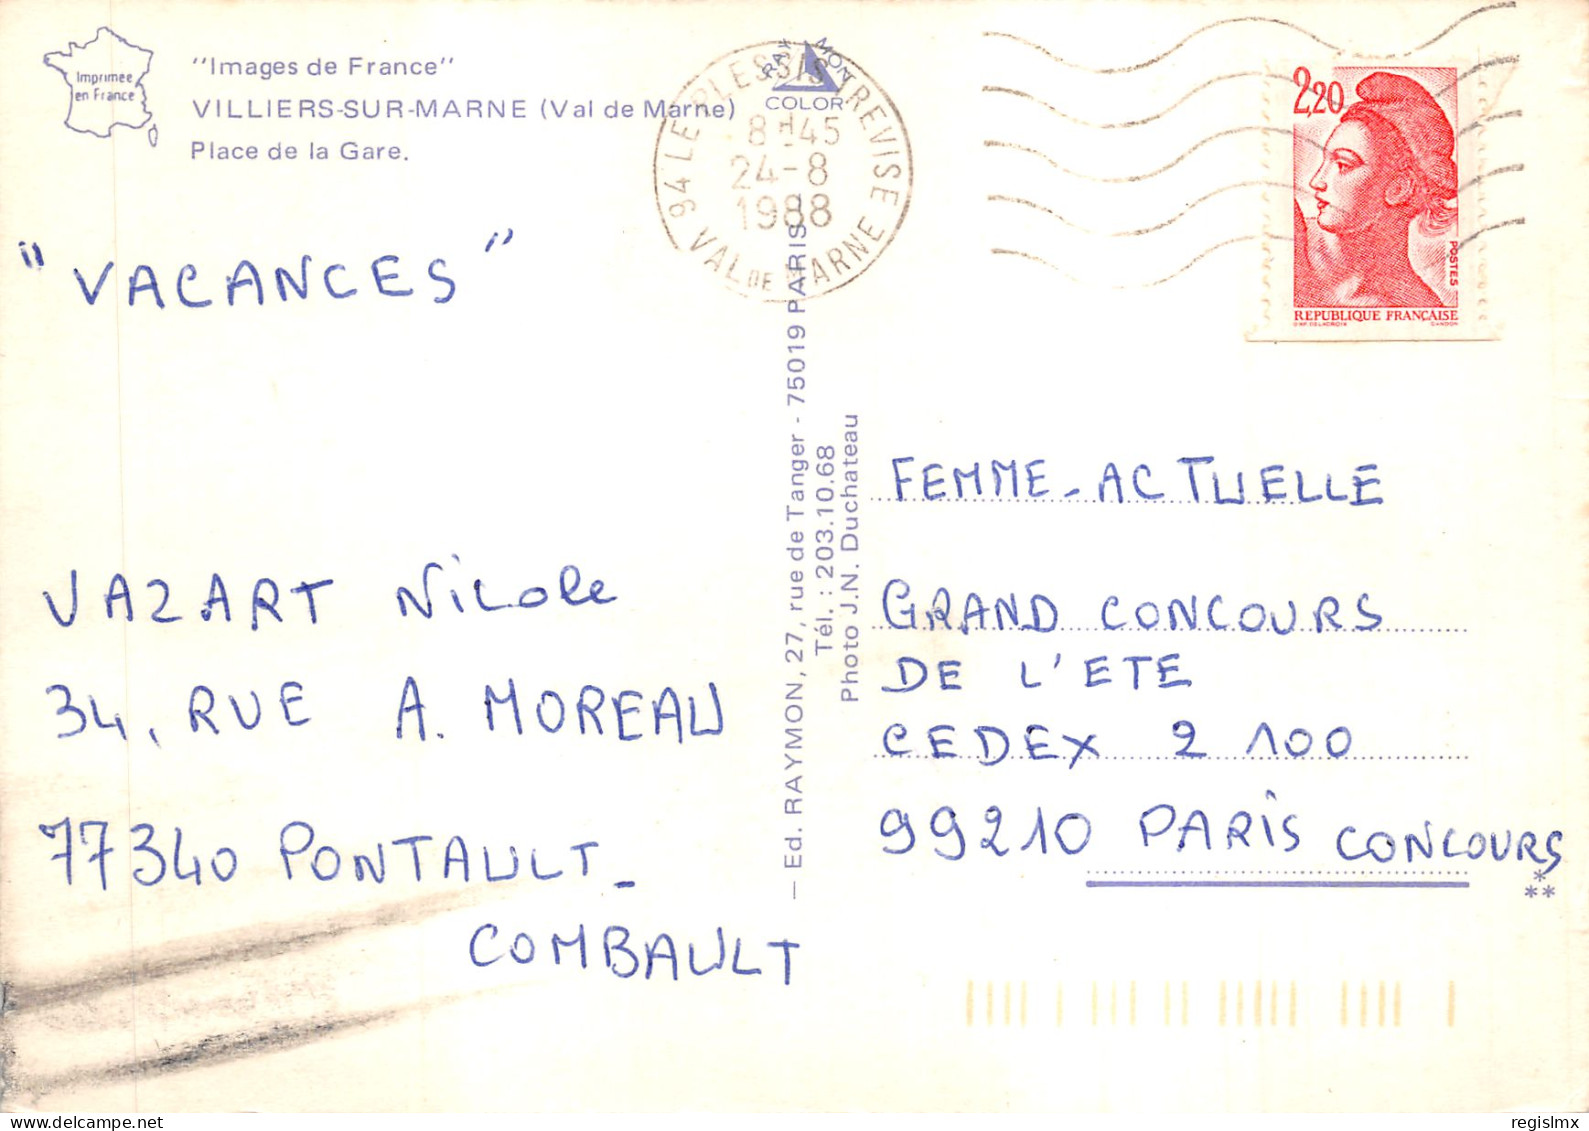 Imprimée
en France
"Images de France"
VILLIERS-SUR-MARNE (Val de Marne)
Place de la Gare.
RAYMON
COLOR
94 LE PLESSIS TREVISE
8H45
24-8
1988
VAL DE MARNE
2,20
POSTES
REPUBLIQUE FRANÇAISE
D'AP. DELACROIX GANDON
"VACANCES"
VAZART Nicole
34, RUE A. MOREAU
77340 PONTAULT-
COMBAULT
— Ed. RAYMON, 27, rue de Tanger - 75019 PARIS
Tél. : 203.10.68
Photo J.N. Duchateau
FEMME-ACTUELLE
GRAND CONCOURS
DE L'ETE
CEDEX 2 100
99210 PARIS CONCOURS
*
**
regislmx